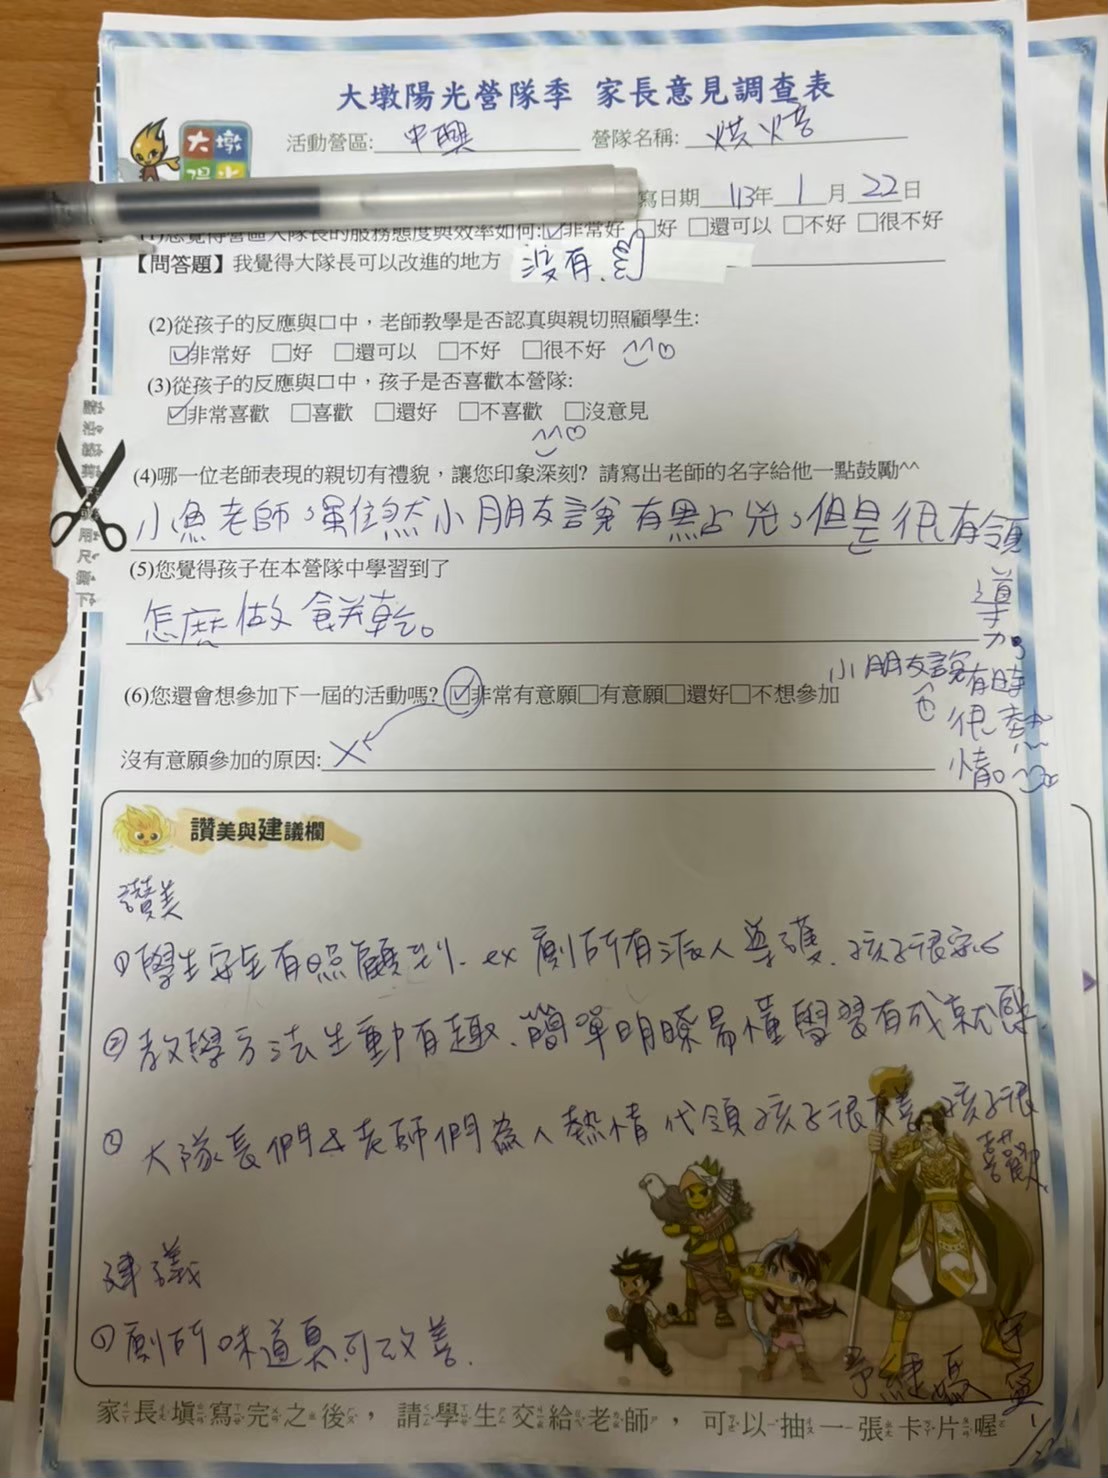 大墩陽光營隊季 家長意見調查表
大墩
陽光
活動營區: 中興 營隊名稱: 烘焙
寫日期 113年 1 月 22 日
(1)您覺得營區大隊長的服務態度與效率如何:☑非常好 □好 □還可以 □不好 □很不好
【問答題】我覺得大隊長可以改進的地方 沒有.
(2)從孩子的反應與口中,老師教學是否認真與親切照顧學生:
☑非常好 □好 □還可以 □不好 □很不好
(3)從孩子的反應與口中,孩子是否喜歡本營隊:
☑非常喜歡 □喜歡 □還好 □不喜歡 □沒意見
(4)哪一位老師表現的親切有禮貌,讓您印象深刻? 請寫出老師的名字給他一點鼓勵^^
小魚老師,雖然小朋友說有點兇,但是很有領
導力,
(5)您覺得孩子在本營隊中學習到了
怎麼做餅乾。
小朋友說有時
很熱
情。
(6)您還會想參加下一屆的活動嗎? ☑非常有意願□有意願□還好□不想參加
沒有意願參加的原因: X
讚美與建議欄
讚美
① 學生安全有照顧到. ex 廁所有派人導護. 孩子很安心
② 教學方法生動有趣、簡單明瞭易懂學習有成就感
③ 大隊長們&老師們為人熱情 代領孩子很友善 孩子很
喜歡
建議
① 廁所味道臭.可改善.
宇寧
家長填寫完之後,請學生交給老師,可以抽一張卡片喔